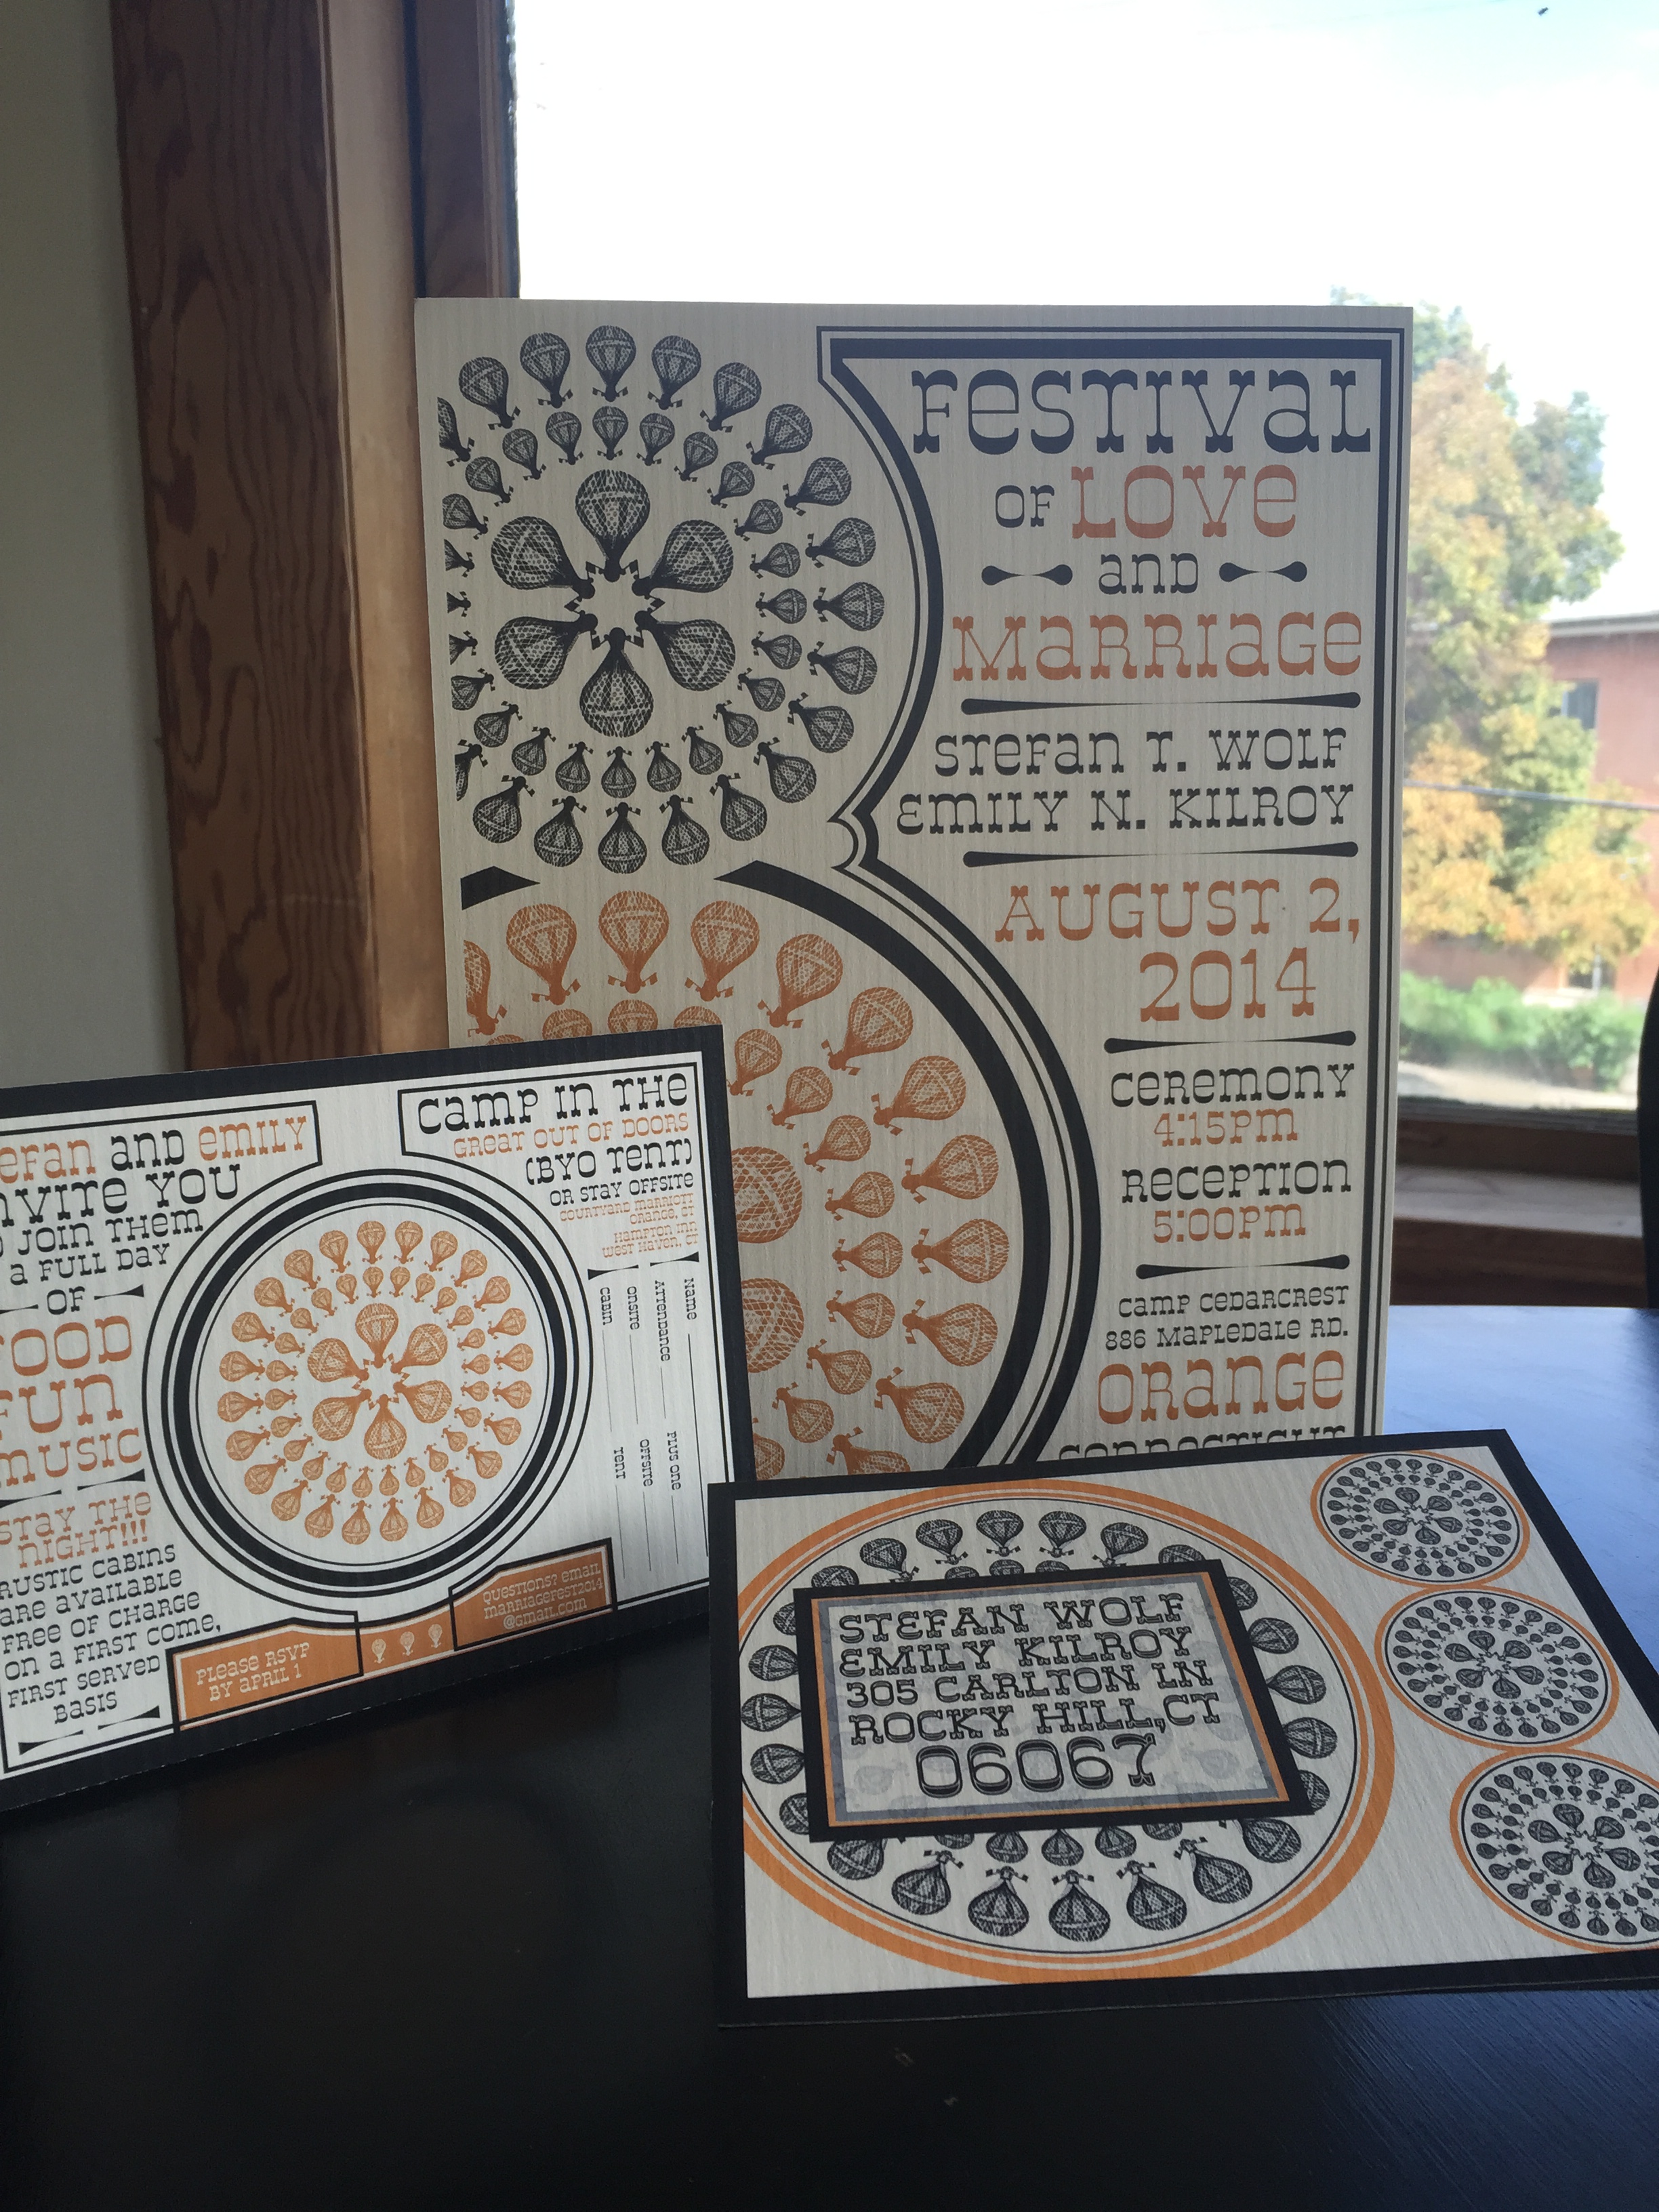 FESTIVAL
OF LOVE
AND
MARRIAGE
STEFAN T. WOLF
EMILY N. KILROY
AUGUST 2,
2014
CEREMONY
4:15PM
RECEPTION
5:00PM
CAMP CEDARCREST
886 MAPLEDALE RD.
ORANGE
CONNECTICUT
EFAN AND EMILY
NVITE YOU
O JOIN THEM
A FULL DAY
OF
FOOD
FUN
MUSIC
STAY THE
NIGHT!!!
RUSTIC CABINS
ARE AVAILABLE
FREE OF CHARGE
ON A FIRST COME,
FIRST SERVED
BASIS
PLEASE RSVP
BY APRIL 1
QUESTIONS? EMAIL
MARRIAGEFEST2014
@GMAIL.COM
CAMP IN THE
GREAT OUT OF DOORS
(BYO TENT)
OR STAY OFFSITE
COURTYARD MARRIOTT
ORANGE, CT
HAMPTON INN
WEST HAVEN, CT
NAME
ATTENDANCE PLUS ONE
ONSITE OFFSITE
CABIN TENT
STEFAN WOLF
EMILY KILROY
305 CARLTON LN
ROCKY HILL, CT
06067